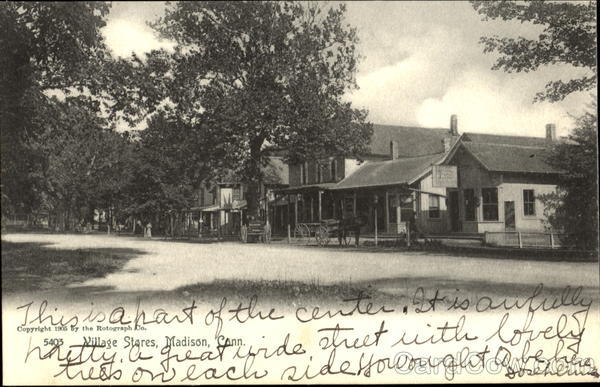 This is a part of the center. It is awfully
Copyright 1905 by the Rotograph Co.
5403 Village Stores, Madison, Conn.
pretty, a great wide street with lovely
trees on each side. Your lot love
CardCow.com